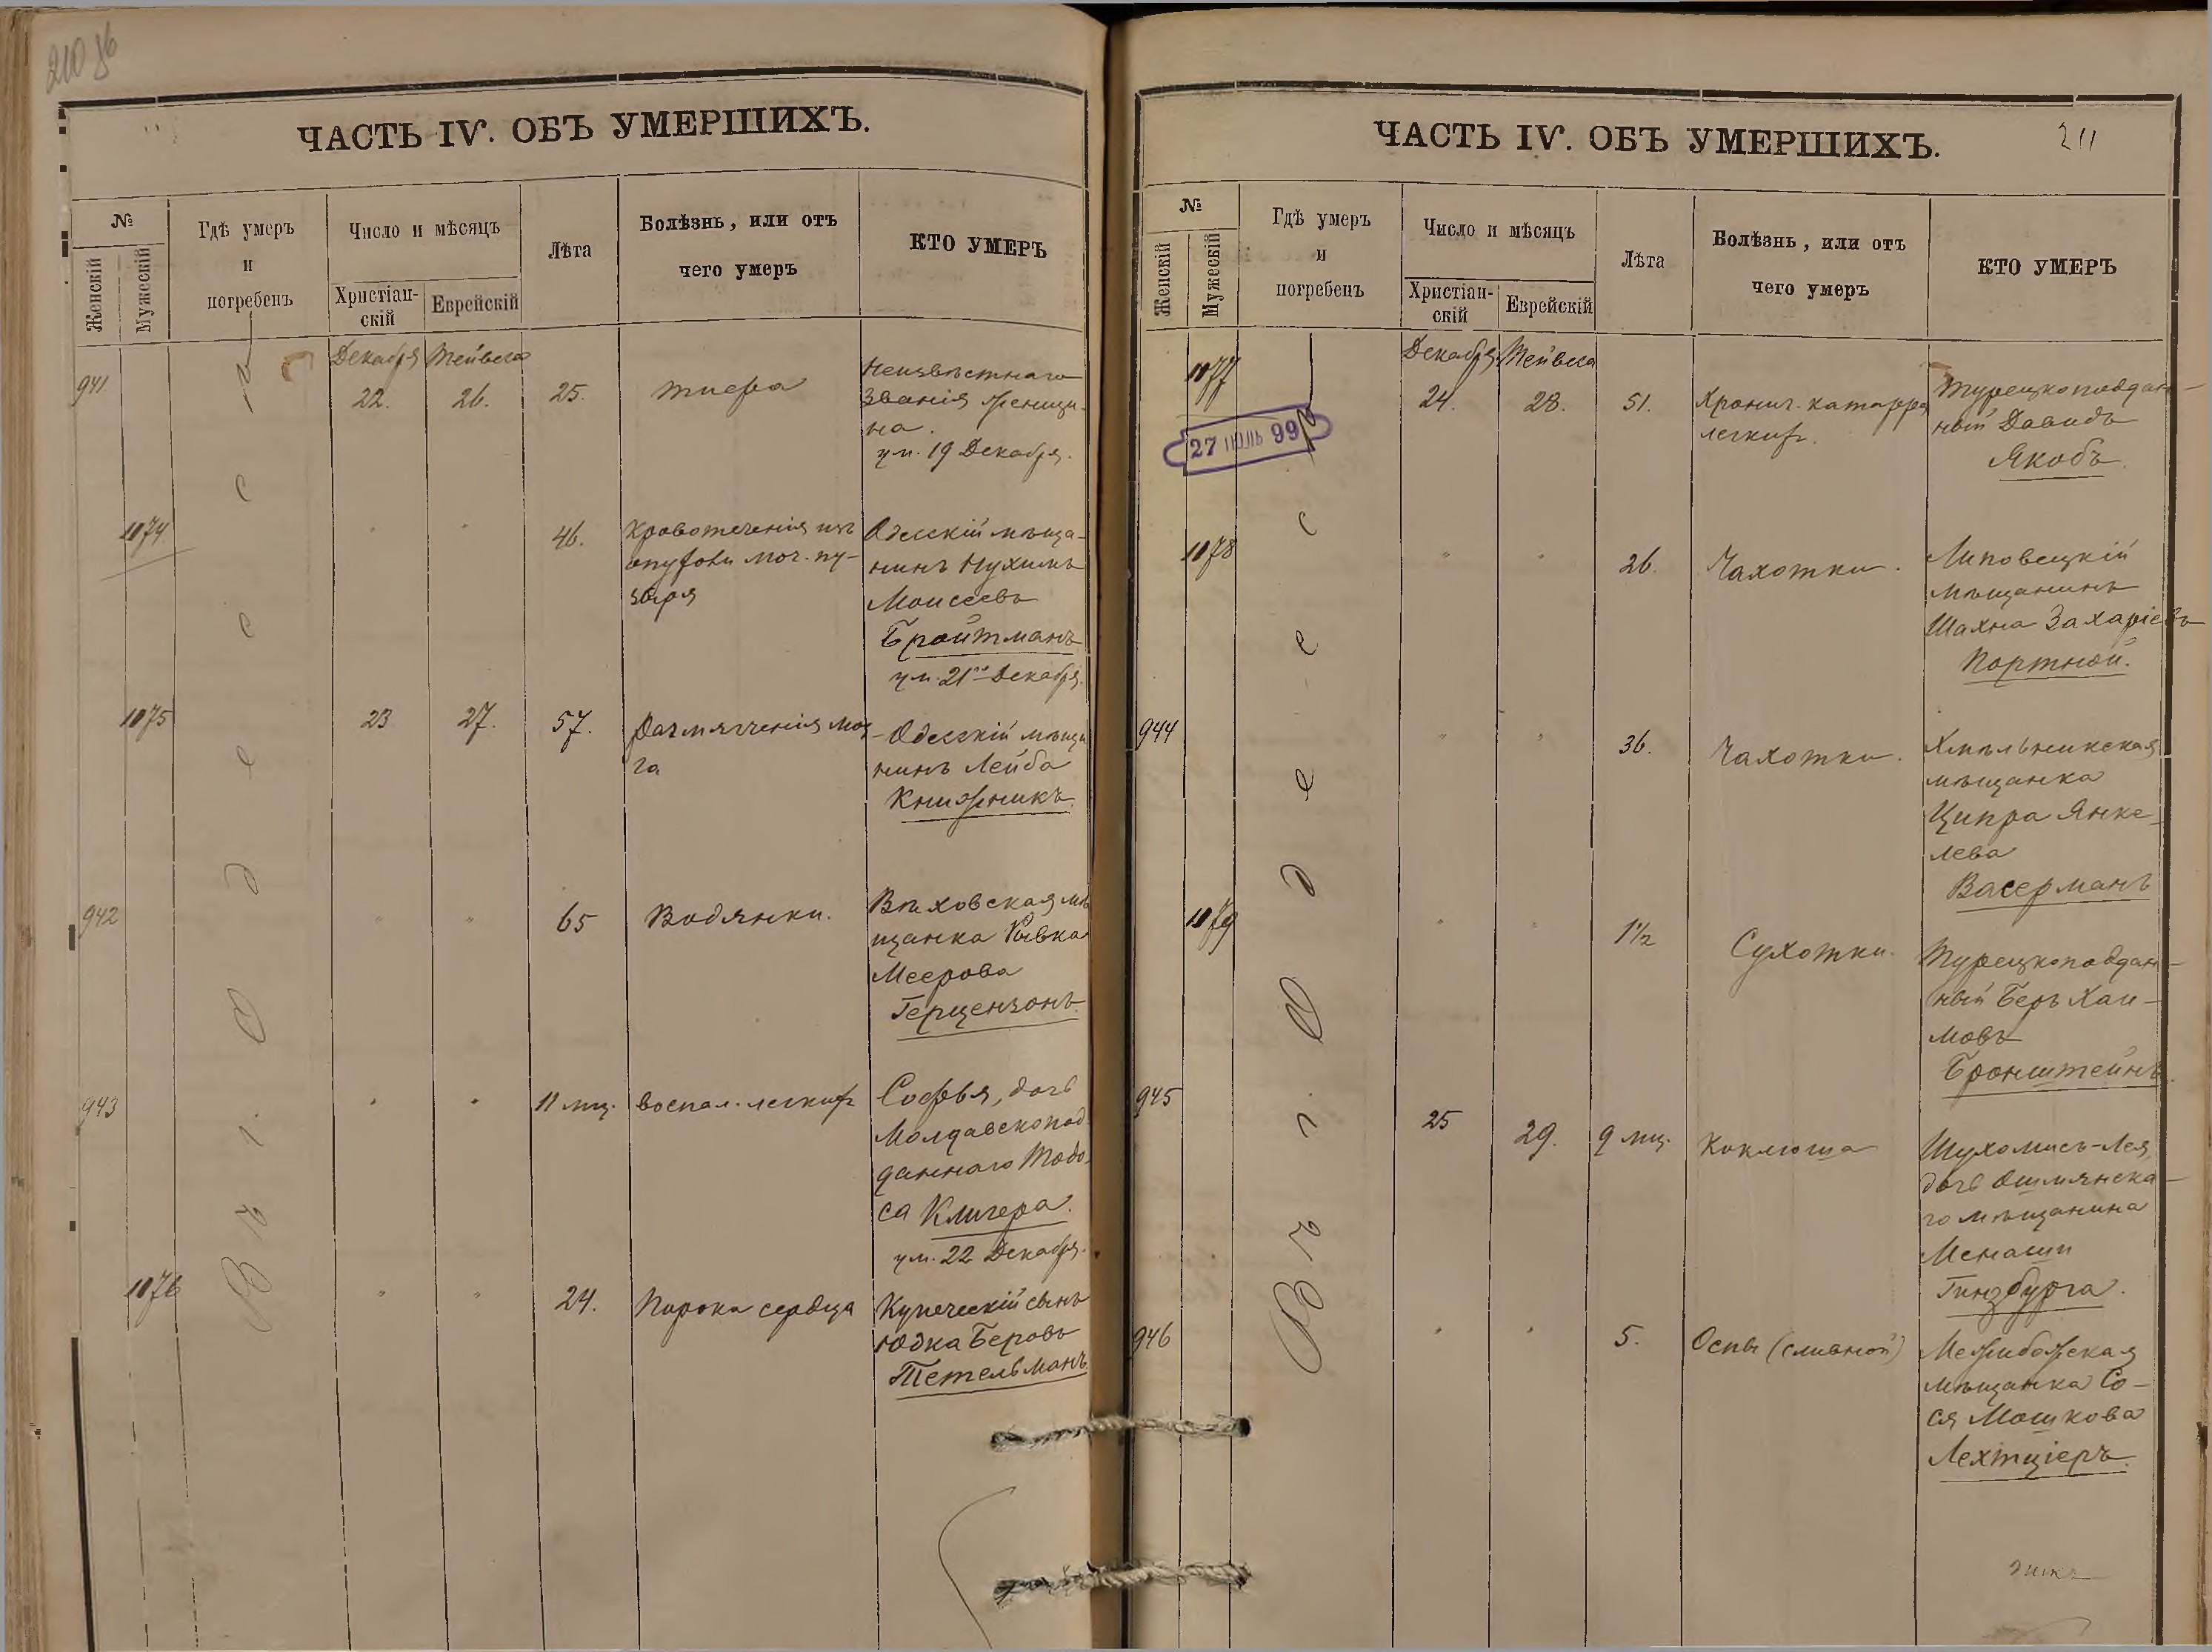 210 об
ЧАСТЬ IV. ОБЪ УМЕРШИХЪ.
№
Женскій
Мужескій
Гдѣ умеръ
и
погребенъ
Число и мѣсяцъ
Христіан-
скій
Еврейскій
Лѣта
Болѣзнь, или отъ
чего умеръ
КТО УМЕРЪ
Въ г. Одессѣ
Декабря Тейвеса
941 22. 26. 25. тифа Неизвѣстнаго
званія женщи-
на.
ум. 19 Декабря.
1074 " " 46. Кровотеченія изъ Одесскій мѣща-
опухоли моч. пу- нинъ Нухимъ
зыря Моисеевъ
Бройтманъ
ум. 21го Декабря.
1075 23 27. 57. Размягченія моз- Одесскій мѣща
га нинъ Лейба
Книжникъ.
942 " " 65 Водянки. Быховская мѣ
щанка Рывка
Меерова
Герцензонъ.
943 " " 11 мц. воспал. легкихъ Софья, дочь
Молдавскопод
даннаго Тодо-
са Клигера.
ум. 22 Декабря.
1076 " " 24. Порока сердца Купеческій сынъ
Юдка Беровъ
Тетельманъ.
ЧАСТЬ IV. ОБЪ УМЕРШИХЪ.
211
№
Женскій
Мужескій
Гдѣ умеръ
и
погребенъ
Число и мѣсяцъ
Христіан-
скій
Еврейскій
Лѣта
Болѣзнь, или отъ
чего умеръ
КТО УМЕРЪ
Въ г. Одессѣ
Декабря Тейвеса
1077 24. 28. 51. Хронич. катарра Турецкоподдан-
легкихъ. ный Давидъ
Якобъ.
27 ІЮЛЬ 99
1078 " " 26. Чахотки. Липовецкій
мѣщанинъ
Шахна Захаріевъ
Портной.
944 " " 36. Чахотки. Хмѣльникская
мѣщанка
Ципра Янке-
лева
Васерманъ
1079 " " 1½ Сухотки. Турецкоподдан-
ный Беръ Хаи-
мовъ
Бронштейнъ.
945 25 29. 9 мц. Коклюша Шухомись-Лея,
дочь Ошмянска-
го мѣщанина
Менаши
Гинзбурга.
946 " " 5. Оспы (сливной) Межибожская
мѣщанка Со-
ся Мошкова
Лехтціеръ.